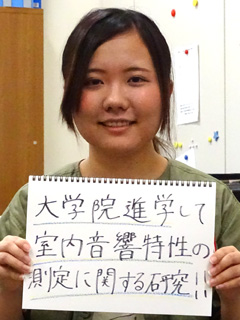 大学院進学して
室内音響特性の
測定に関する研究!!